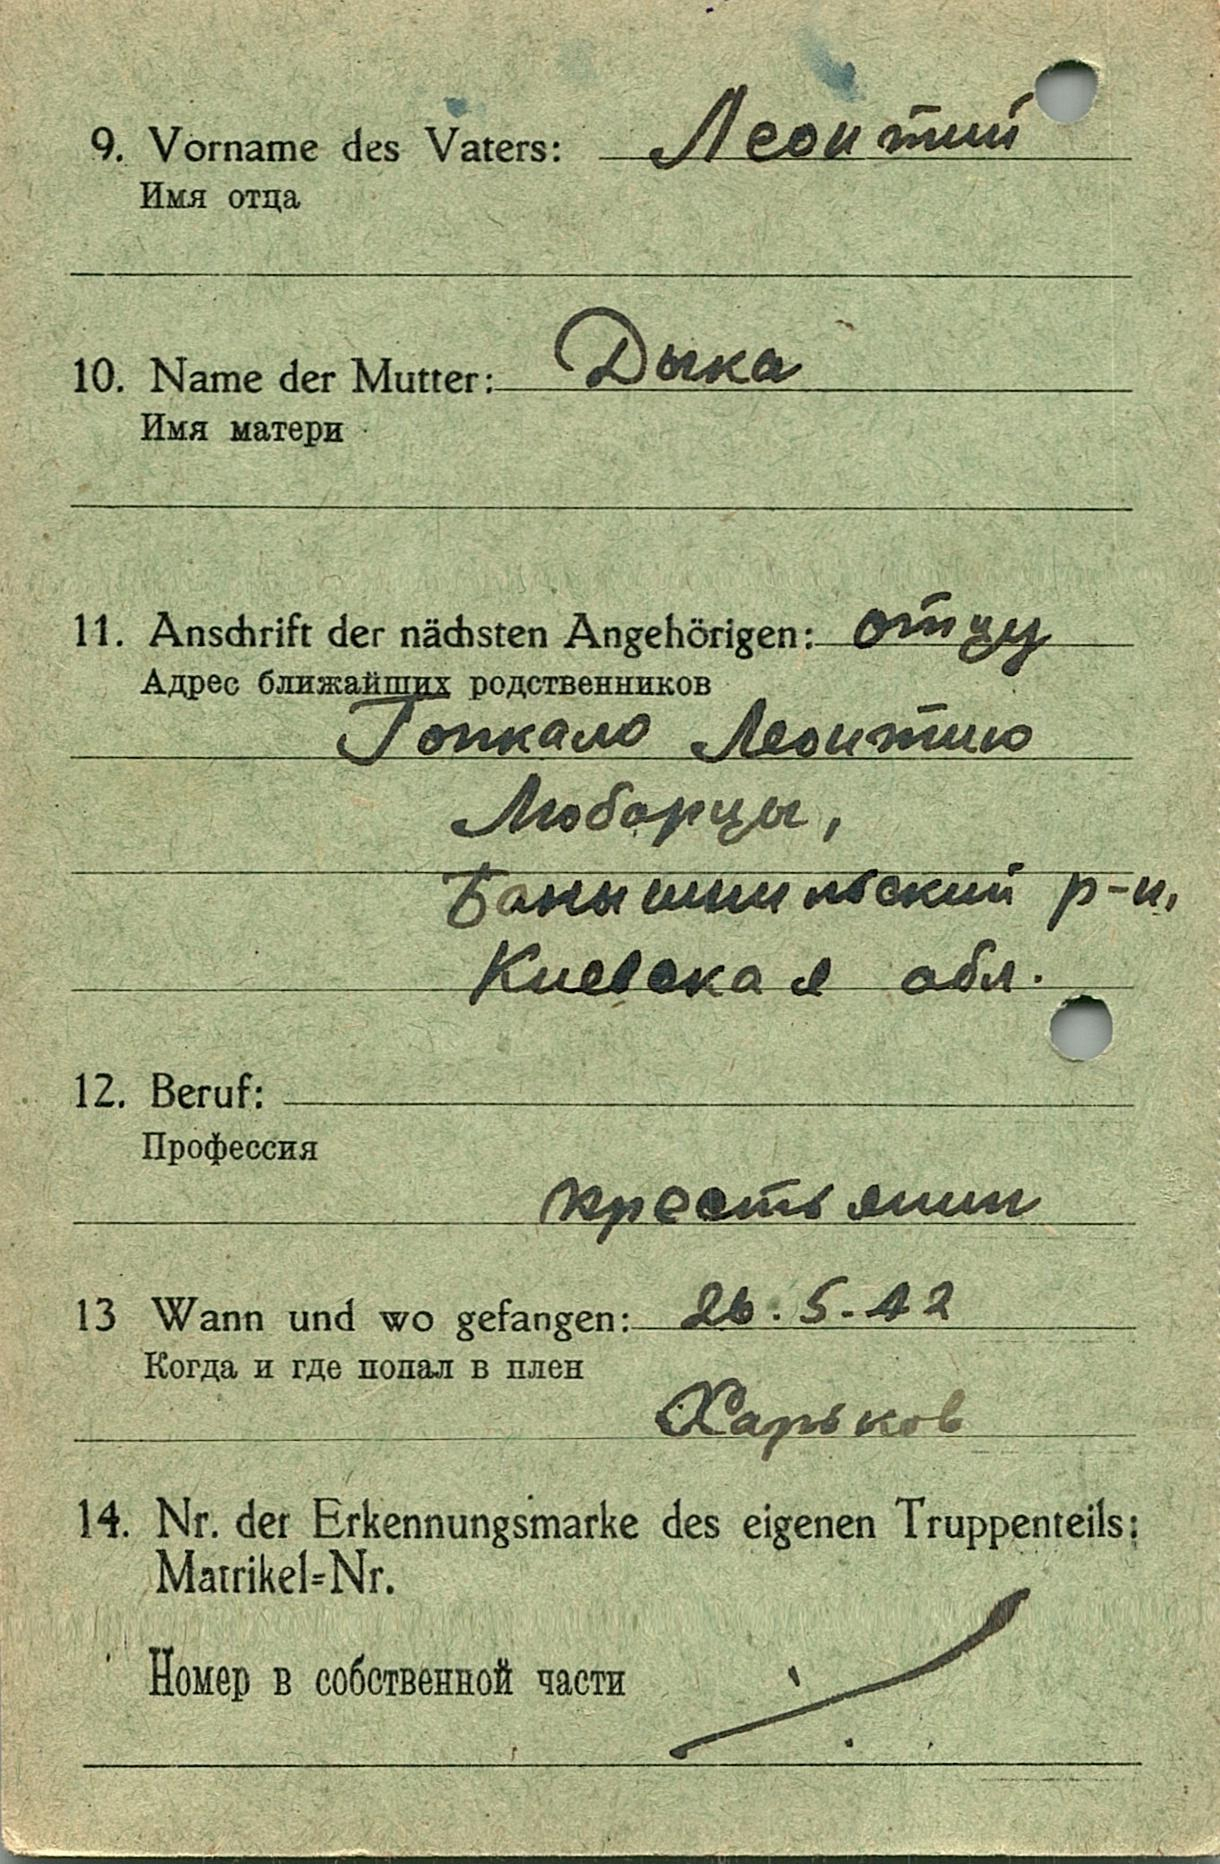 9. Vorname des Vaters: Леонтий
Имя отца
10. Name der Mutter: Дыка
Имя матери
11. Anschrift der nächsten Angehörigen: отцу
Адрес ближайших родственников
Гопкало Леонтию
Люборцы,
Банышильский р-н,
Киевская обл.
12. Beruf:
Профессия
крестьянин
13 Wann und wo gefangen: 26.5-42
Когда и где попал в плен
Харьков
14. Nr. der Erkennungsmarke des eigenen Truppenteils:
Matrikel=Nr.
Номер в собственной части